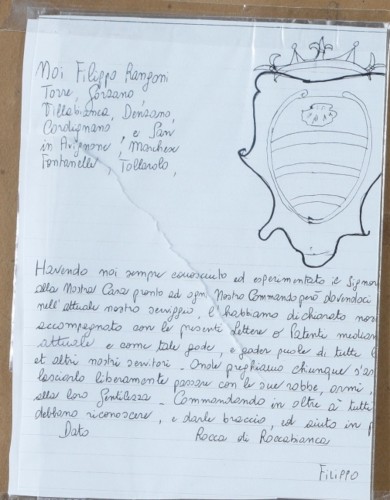 Noi Filippo Rangoni
Torre, Gorzano,
Villabianca, Denzano,
Cordignano, e San
in Avignone, Marchese
Fontanelle, Tollarolo,
Havendo noi sempre conosciuto ed esperimentato il Signor
alla Nostra Casa pronto ad ogni Nostro Commando però dovendoci
nell'attuale nostro servigio, l'habbiamo dichiarato nos
accompagnato con le presenti lettere o Patente median
attuale e come tale gode, e goder puole di tutte l
et altri nostri servitori. Onde preghiamo chiunque s'as
lasciarlo liberamente passare con le sue robbe, armi,
alla loro Gentilezza. Commandando in oltre à tutti
debbano riconoscere, e darle braccio, ed aiuto in p
Dato Rocca di Roccabianca
FILIPPO